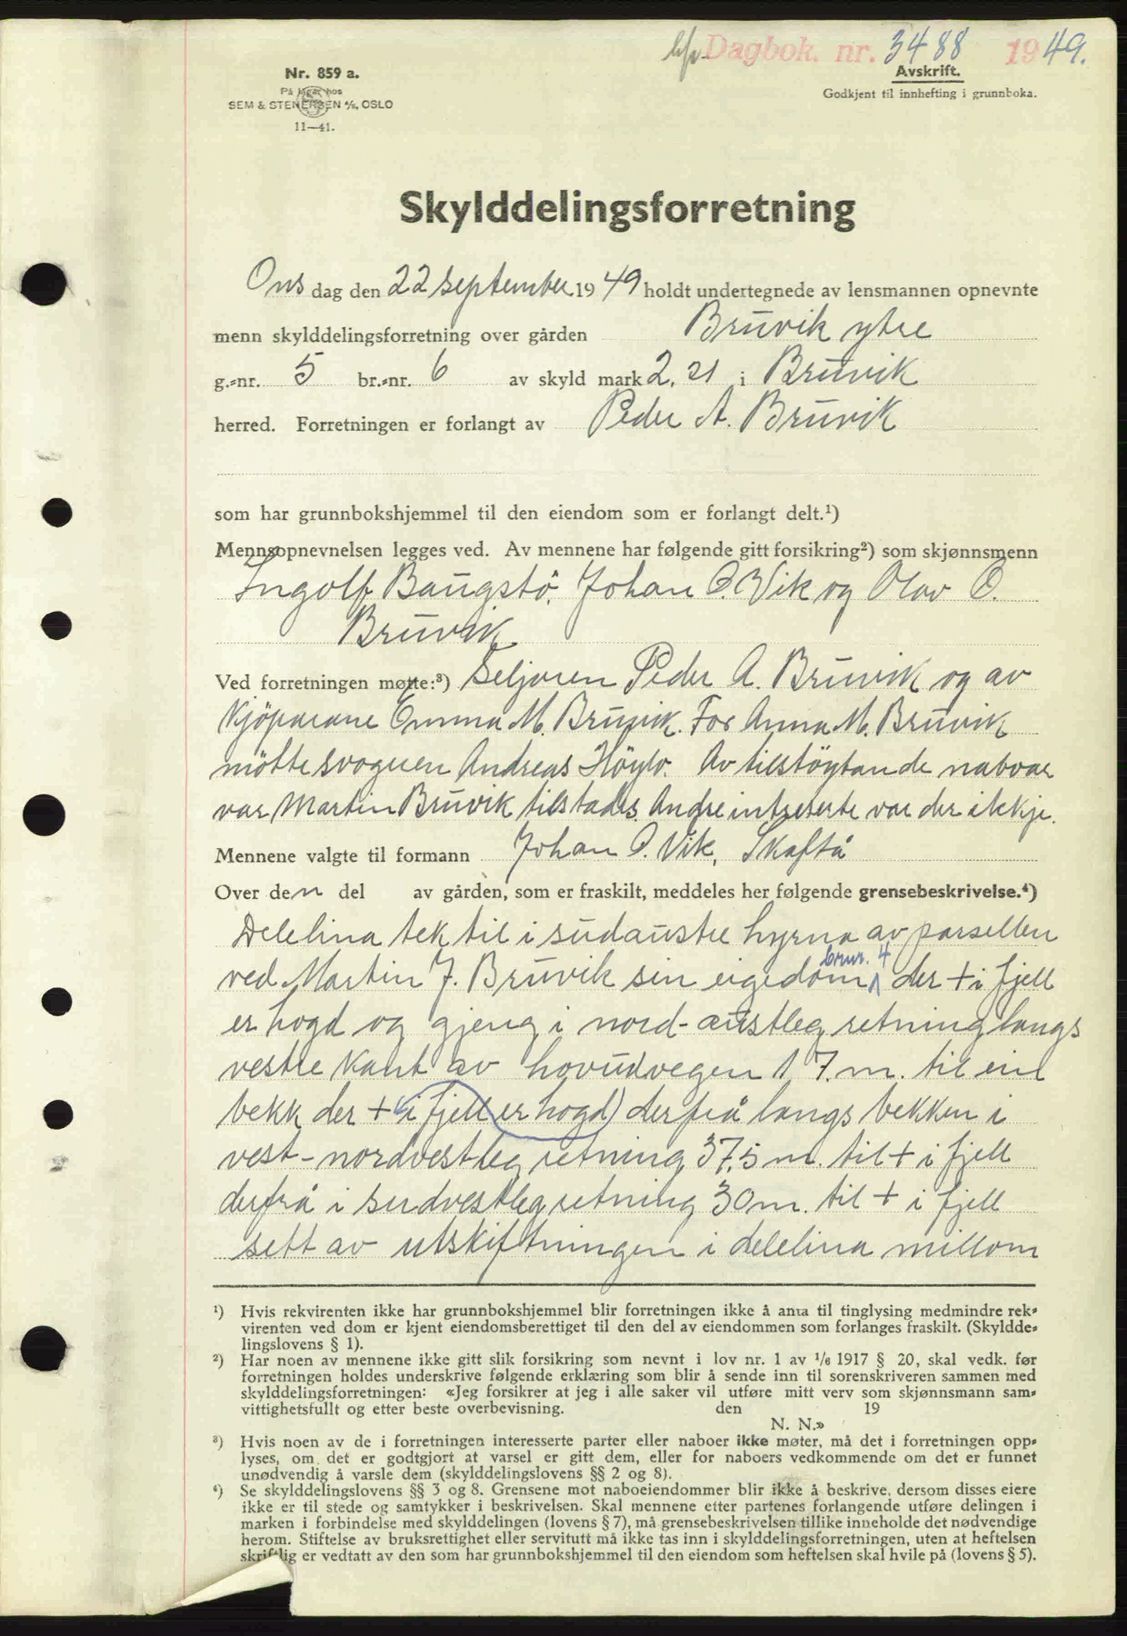 Dagbok. nr. 3488 1949.
Nr. 859 a.
Avskrift.
På lager hos
Godkjent til innhefting i grunnboka.
SEM & STENERSEN A/S, OSLO
11—41.
Skylddelingsforretning
Onsdag den 22 september 1949 holdt undertegnede av lensmannen opnevnte
menn skylddelingsforretning over gården Bruvik ytre
g.-nr. 5 br.-nr. 6 av skyld mark 2,21 i Bruvik
herred. Forretningen er forlangt av Peder A. Bruvik
som har grunnbokshjemmel til den eiendom som er forlangt delt.¹)
Mennsopnevnelsen legges ved. Av mennene har følgende gitt forsikring²) som skjønnsmenn
Ingolf Baugstö, Johan O. Vik og Olav O.
Bruvik
Ved forretningen møtte:³) Seljaren Peder A. Bruvik og av
Kjöparane Emma M. Bruvik. For Anna M. Bruvik
mötte svogeren Andreas. Av tilstöytande naboar
var Martin Bruvik tilstades. Andre intreserte var der ikkje.
Mennene valgte til formann Johan O. Vik, Skaftå
Over den del av gården, som er fraskilt, meddeles her følgende grensebeskrivelse.⁴)
Delelina tek til i sudaustre hyrna av parsellen
ved Martin J. Bruvik sin eigedom brnr. 4 der + i fjell
er hogd og gjeng i nord-austleg retning langs
vestre kant av hovudvegen 17 m. til ein
bekk der + i fjell er hogd) derfrå langs bekken i
vest-nordvestleg retning 37,5 m. til + i fjell
derfrå i sudvestleg retning 30 m. til + i fjell
sett av utskiftningen i delelina millom
¹) Hvis rekvirenten ikke har grunnbokshjemmel blir forretningen ikke å anta til tinglysing medmindre rek-
virenten ved dom er kjent eiendomsberettiget til den del av eiendommen som forlanges fraskilt. (Skyldde-
lingslovens § 1).
²) Har noen av mennene ikke gitt slik forsikring som nevnt i lov nr. 1 av 1/6 1917 § 20, skal vedk. før
forretningen holdes underskrive følgende erklæring som blir å sende inn til sorenskriveren sammen med
skylddelingsforretningen: «Jeg forsikrer at jeg i alle saker vil utføre mitt verv som skjønnsmann sam-
vittighetsfullt og etter beste overbevisning. den 19
N. N.»
³) Hvis noen av de i forretningen interesserte parter eller naboer ikke møter, må det i forretningen opp-
lyses, om det er godtgjort at varsel er gitt dem, eller for naboers vedkommende om det er funnet
unødvendig å varsle dem (skylddelingslovens §§ 2 og 8).
⁴) Se skylddelingslovens §§ 3 og 8. Grensene mot naboeiendommer blir ikke å beskrive, dersom disses eiere
ikke er til stede og samtykker i beskrivelsen. Skal mennene etter partenes forlangende utføre delingen i
marken i forbindelse med skylddelingen (lovens § 7), må grensebeskrivelsen tillike inneholde det nødvendige
herom. Stiftelse av bruksrettighet eller servitutt må ikke tas inn i skylddelingsforretningen, uten at heftelsen
skriftlig er vedtatt av den som har grunnbokshjemmel til den eiendom som heftelsen skal hvile på (lovens § 5).